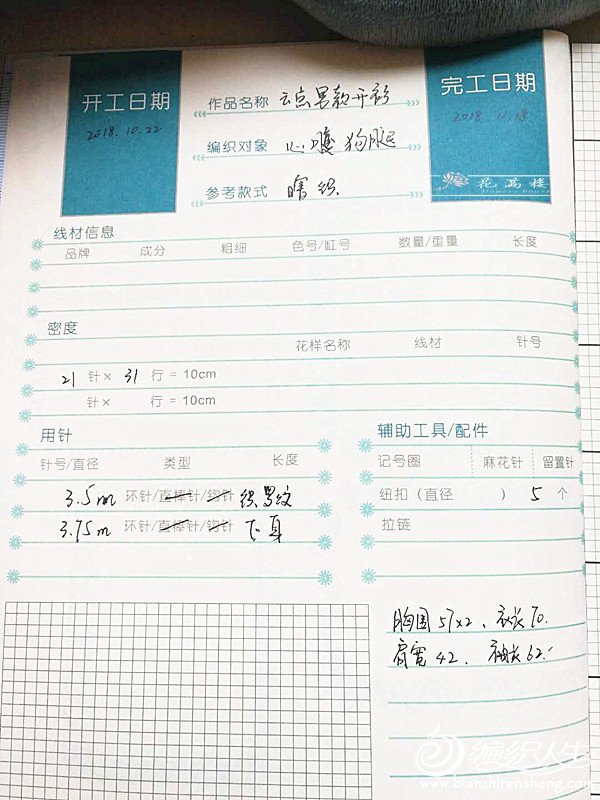 开工日期
2018.10.22
作品名称 云点男款开衫
编织对象 心暖狗腿
参考款式 瞎织
完工日期
2018. 11.18
花满楼
flowers house
线材信息
品牌 成分 粗细 色号/缸号 数量/重量 长度
密度
花样名称 线材 针号
21 针× 31 行 = 10cm
针× 行 = 10cm
用针
针号/直径 类型 长度
3.5m 环针/直棒针/钩针 织罗纹
3.75m 环针/直棒针/钩针 下身
辅助工具/配件
记号圈 麻花针 留置针
纽扣（直径 ） 5 个
拉链
胸围57×2、衣长70.
肩宽42、袖长62.
编织人生
www.bianzhirensheng.com